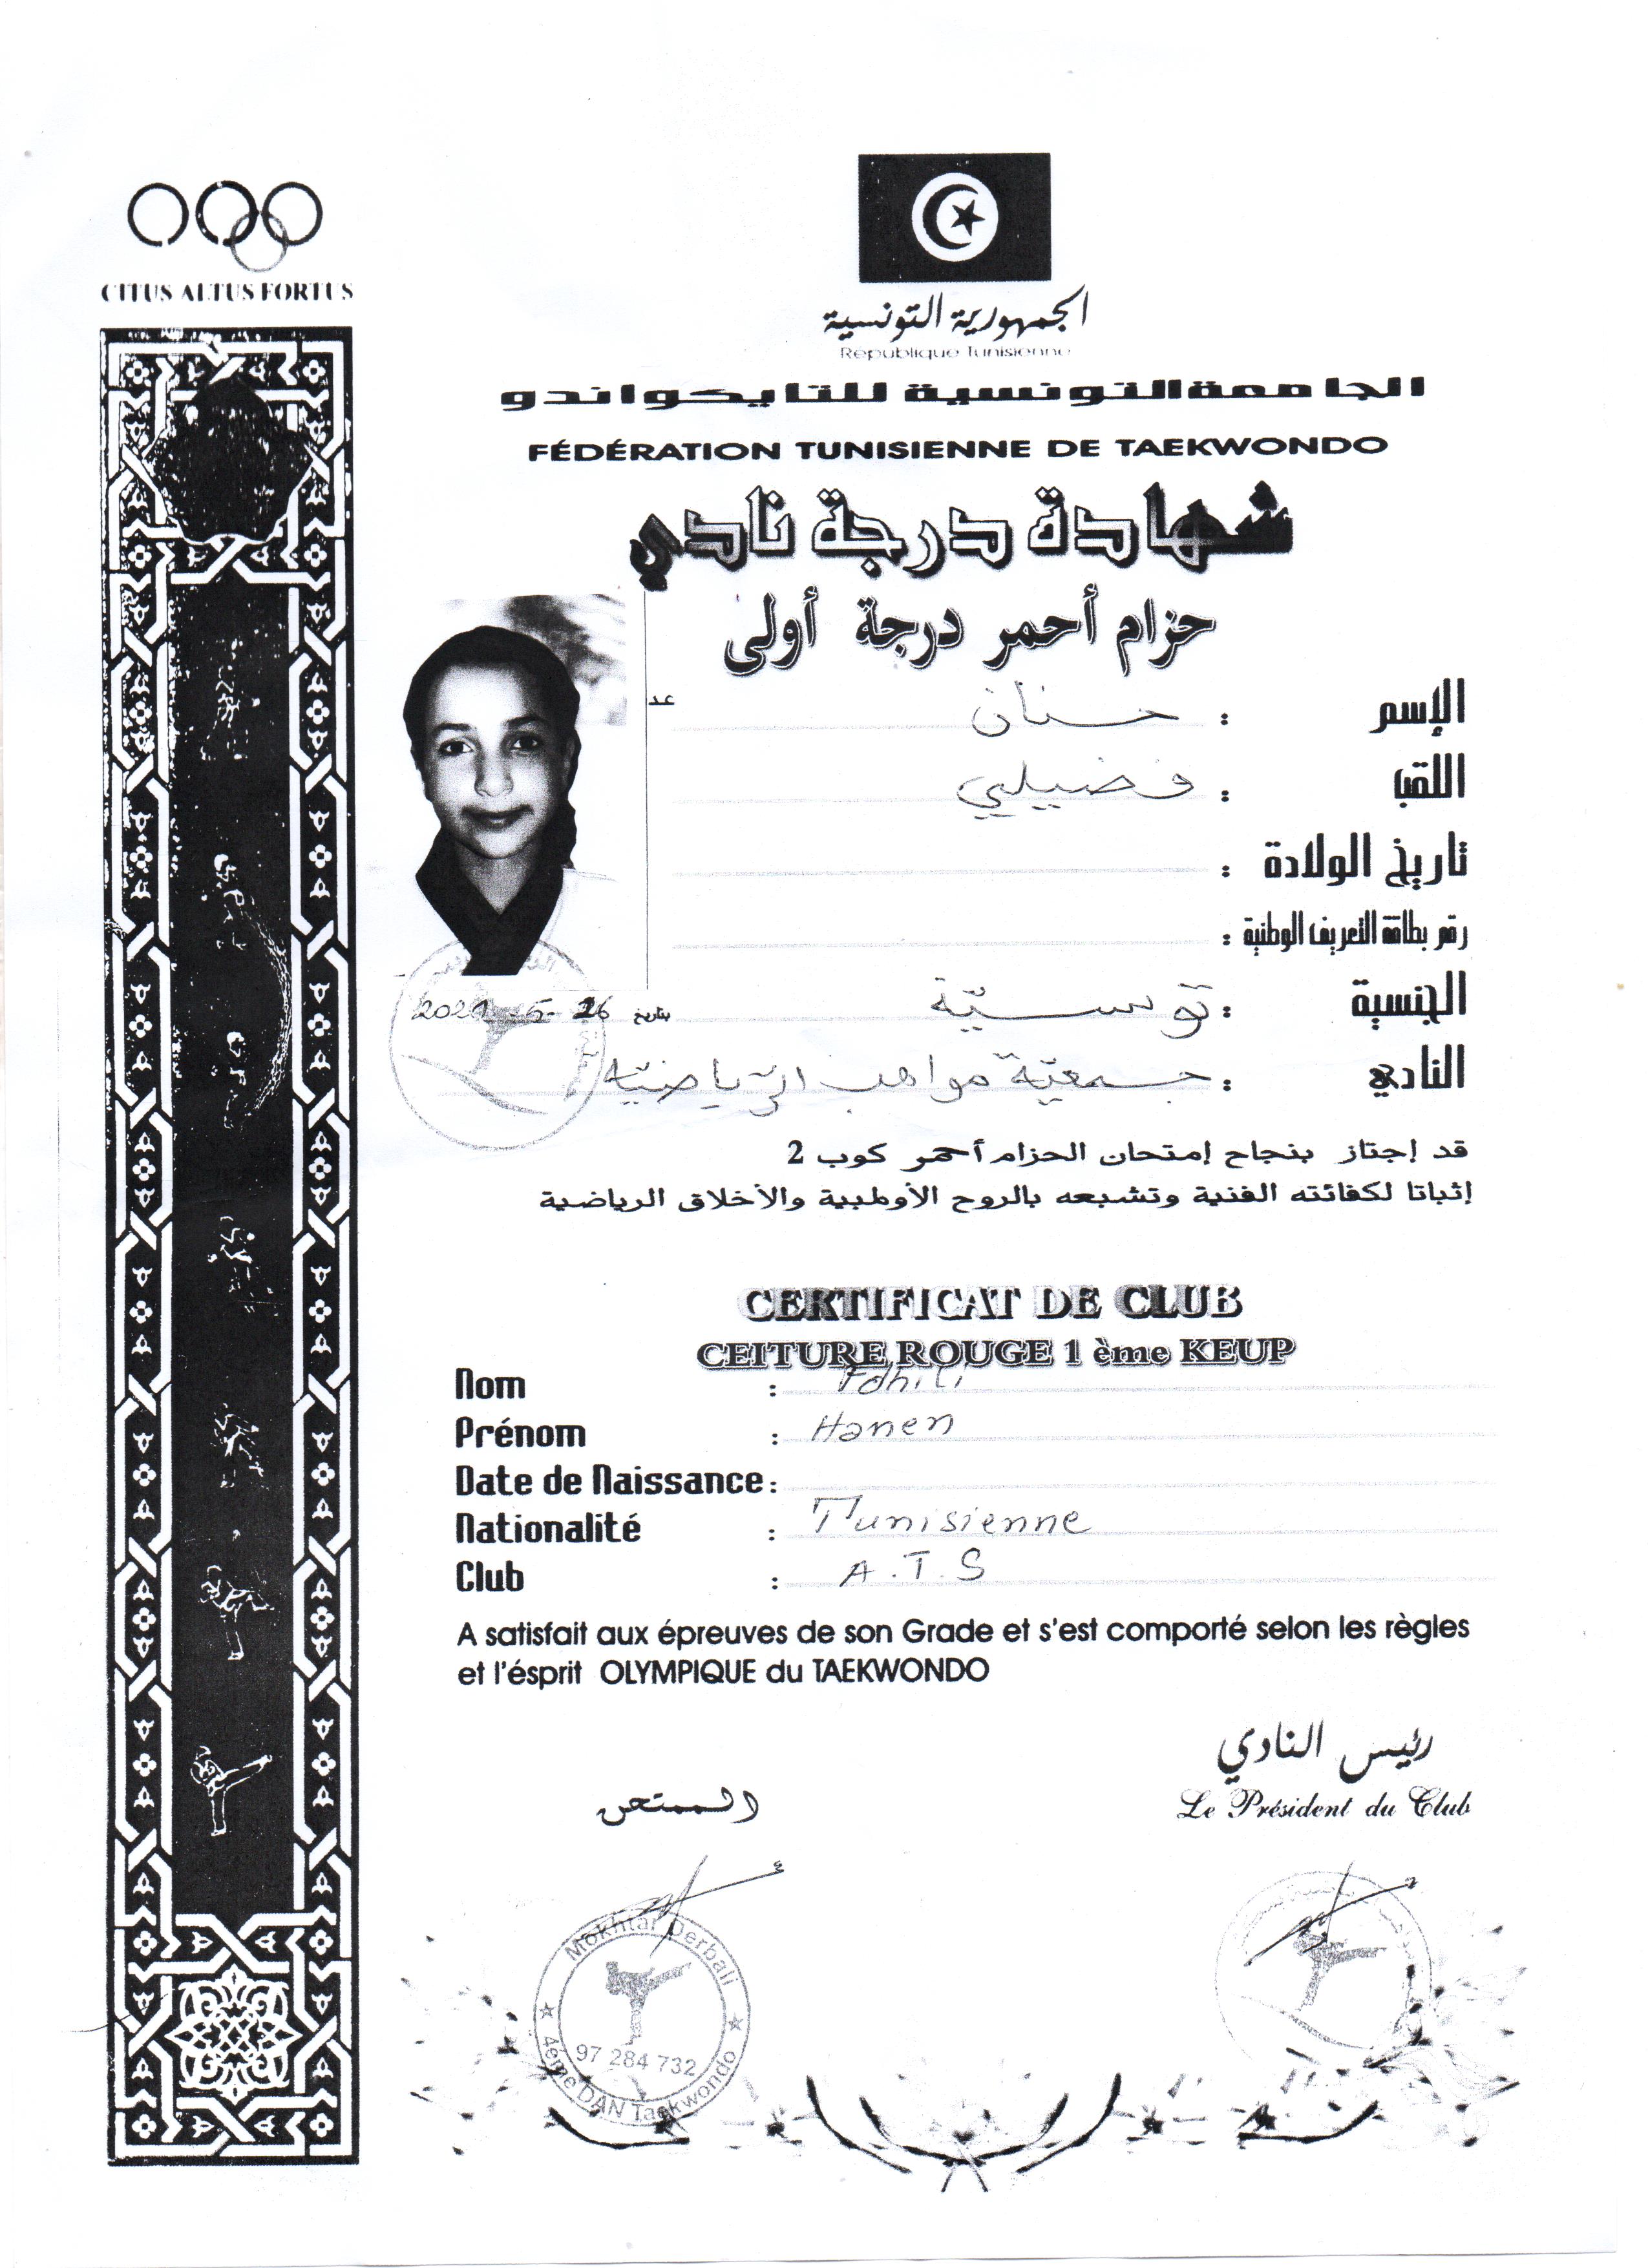 CITUS ALTUS FORTUS
الجمهورية التونسية
République Tunisienne
الجامعة التونسية للتايكواندو
FÉDÉRATION TUNISIENNE DE TAEKWONDO
شهادة درجة نادي
حزام أحمر درجة أولى
عد
الإسم : حنان
اللقب : فضيلي
تاريخ الولادة :
رقم بطاقة التعريف الوطنية :
الجنسية : تونسيّة
بتاريخ 26-5-2021
النادي : جمعيّة مواهب الرياضيّة
قد إجتاز بنجاح إمتحان الحزام أحمر كوب 2
إثباتا لكفائته الفنية وتشبعه بالروح الأولمبية والأخلاق الرياضية
CERTIFICAT DE CLUB
CEITURE ROUGE 1 ème KEUP
Nom : Fdhili
Prénom : Hanen
Date de Naissance :
Nationalité : Tunisienne
Club : A.T.S
A satisfait aux épreuves de son Grade et s'est comporté selon les règles
et l'ésprit OLYMPIQUE du TAEKWONDO
رئيس النادي
Le Président du Club
الممتحن
Mokhtar Derbali
97 284 732
4ème DAN Taekwondo